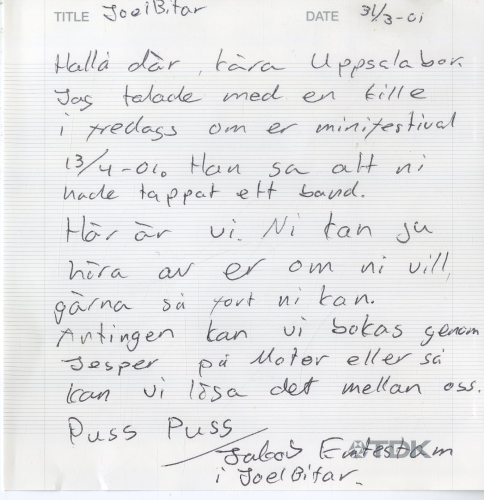 TITLE JoelBitar DATE 31/3-01
Hallå där, kära Uppsalabor.
Jag talade med en kille
i fredags om er minifestival
13/4-01. Han sa att ni
hade tappat ett band.
Här är vi. Ni kan ju
höra av er om ni vill,
gärna så fort ni kan.
Antingen kan vi bokas genom
Jesper på Motor eller så
kan vi lösa det mellan oss.
Puss Puss
/Jakob Emtestam
TDK
i JoelBitar.